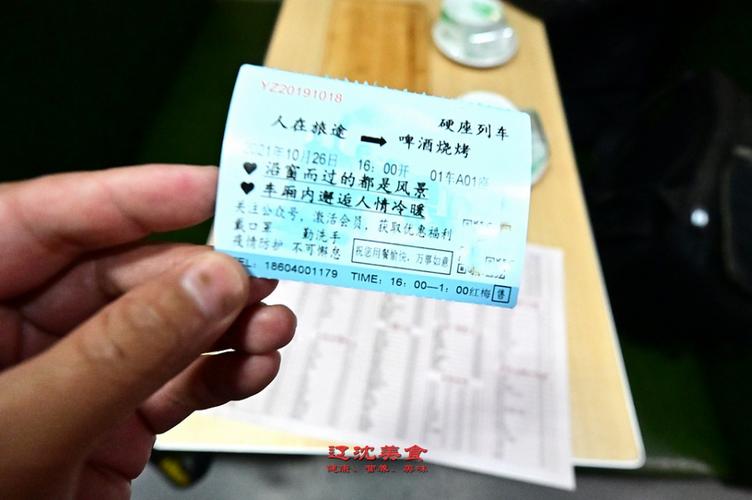 YZ20191018
硬座列车
人在旅途 → 啤酒烧烤
2021年10月26日 16:00开 01车A01座
♥ 浴窗而过的都是风景
♥ 车厢内邂逅人情冷暖
关注公众号，激活会员，获取优惠福利
戴口罩 勤洗手
疫情防护 不可懈怠
祝您用餐愉快，万事如意
TEL: 18604001179 TIME: 16:00—1:00红梅售
辽沈美食
健康、营养、美味